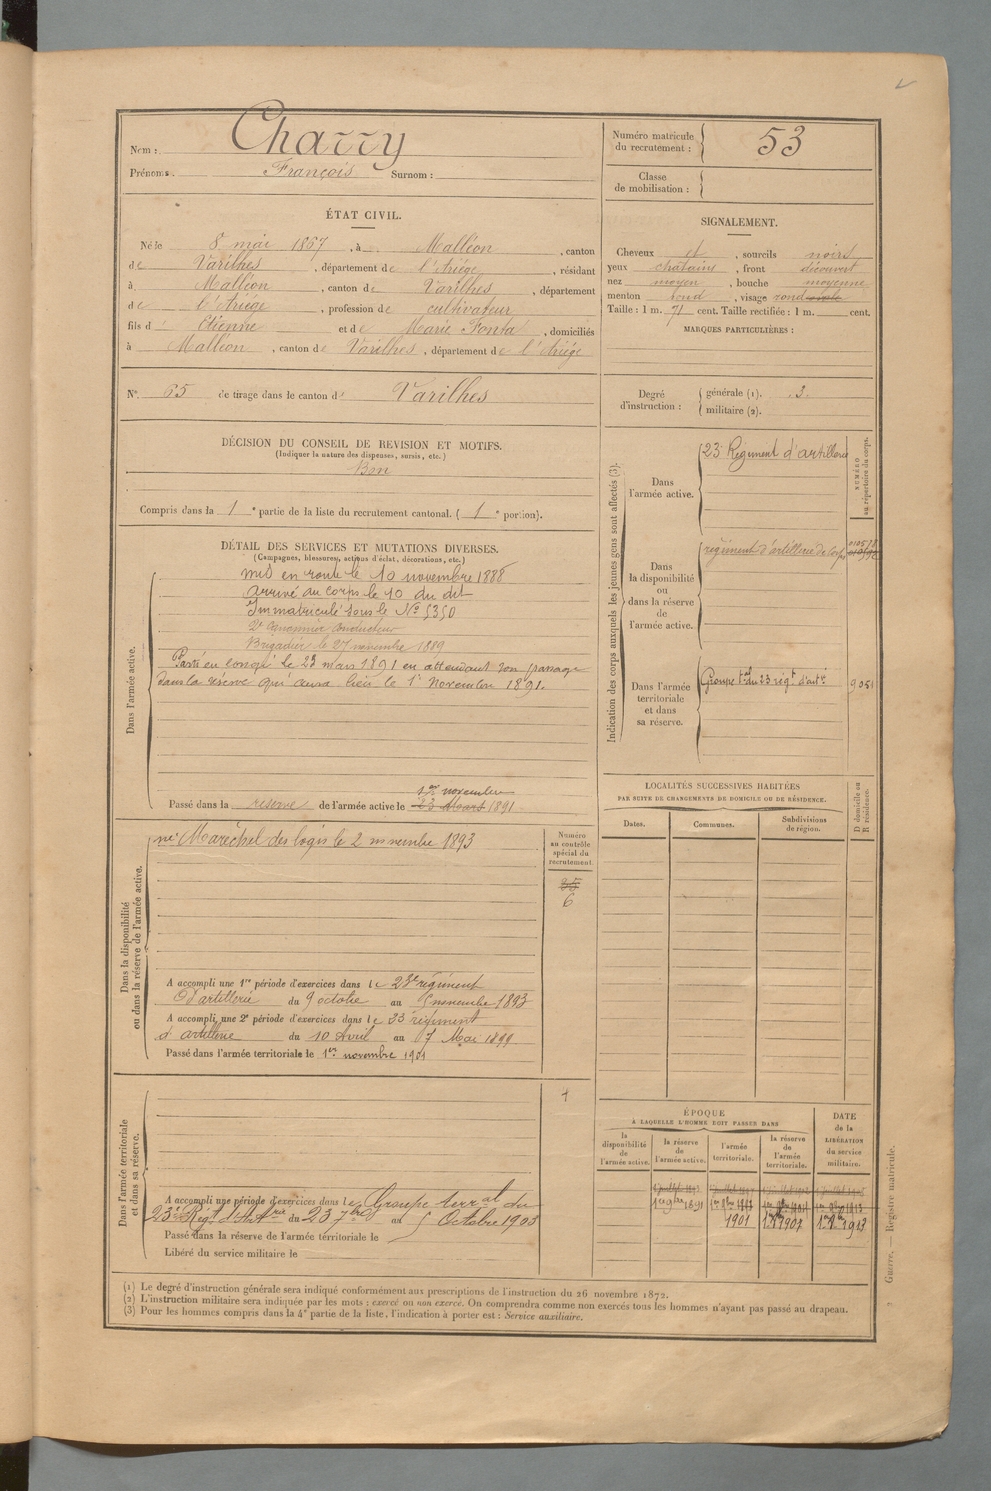 Nom : Charry
Prénoms. François Surnom :
ÉTAT CIVIL.
Né le 8 mai 1867, à Malléon, canton
de Varilhes, département de l'Ariége, résidant
à Malléon, canton de Varilhes, département
de l'Ariége, profession de cultivateur
fils d' Etienne et de Marie Fonta, domiciliés
à Malléon, canton de Varilhes, département de l'Ariége
N° 65 de tirage dans le canton de Varilhes
DÉCISION DU CONSEIL DE REVISION ET MOTIFS.
(Indiquer la nature des dispenses, sursis, etc.)
Bon
Compris dans la 1e partie de la liste du recrutement cantonal. (1e portion).
DÉTAIL DES SERVICES ET MUTATIONS DIVERSES.
(Campagnes, blessures, actions d'éclat, décorations, etc.)
Dans l'armée active.
mis en route le 10 novembre 1888
arrivé au corps le 10 du dit
Immatriculé sous le N° 5350
2e canonnier conducteur
Brigadier le 27 novembre 1889
Parti en congé le 23 mars 1891 en attendant son passage
dans la réserve qui aura lieu le 1er Novembre 1891.
1er novembre
Passé dans la réserve de l'armée active le 23 Mars 1891
Dans la disponibilité
ou dans la réserve de l'armée active.
Maréchal des logis le 2 novembre 1893
Numéro
au contrôle
spécial du
recrutement.
6
A accompli une 1re période d'exercices dans le 23e régiment
d'artillerie du 9 octobre au 5 novembre 1893
A accompli une 2e période d'exercices dans le 23 régiment
d'artillerie du 10 Avril au 7 Mai 1899
Passé dans l'armée territoriale le 1er novembre 1901
Dans l'armée territoriale
et dans sa réserve.
A accompli une période d'exercices dans le Groupe terral du
23e Régt d'Artrie du 23 7bre au 5 Octobre 1903
Passé dans la réserve de l'armée territoriale le
Libéré du service militaire le
Numéro matricule
du recrutement : 53
Classe
de mobilisation :
SIGNALEMENT.
Cheveux et, sourcils noirs
yeux chatains, front découvert
nez moyen, bouche moyenne
menton rond, visage rond ovale
Taille : 1 m. 71 cent. Taille rectifiée : 1 m. cent.
MARQUES PARTICULIÈRES :
Degré
d'instruction :
générale (1). 3.
militaire (2).
Indication des corps auxquels les jeunes gens sont affectés (3).
NUMÉRO
au répertoire du corps.
Dans
l'armée active.
23 Régiment d'artillerie
Dans
la disponibilité
ou
dans la réserve
de
l'armée active.
régiment d'artillerie de Corps
Dans l'armée
territoriale
et dans
sa réserve.
Groupe tal du 23 régt d'artrie
LOCALITÉS SUCCESSIVES HABITÉES
PAR SUITE DE CHANGEMENTS DE DOMICILE OU DE RÉSIDENCE.
D domicile ou
R résidence.
Dates.
Communes.
Subdivisions
de région.
ÉPOQUE
À LAQUELLE L'HOMME DOIT PASSER DANS
DATE
de la
LIBÉRATION
du service
militaire.
la
disponibilité
de
l'armée active.
la réserve
de
l'armée active.
l'armée
territoriale.
la réserve
de
l'armée
territoriale.
1901
Guerre. — Registre matricule.
(1) Le degré d'instruction générale sera indiqué conformément aux prescriptions de l'instruction du 26 novembre 1872.
(2) L'instruction militaire sera indiquée par les mots : exercé ou non exercé. On comprendra comme non exercés tous les hommes n'ayant pas passé au drapeau.
(3) Pour les hommes compris dans la 4e partie de la liste, l'indication à porter est : Service auxiliaire.